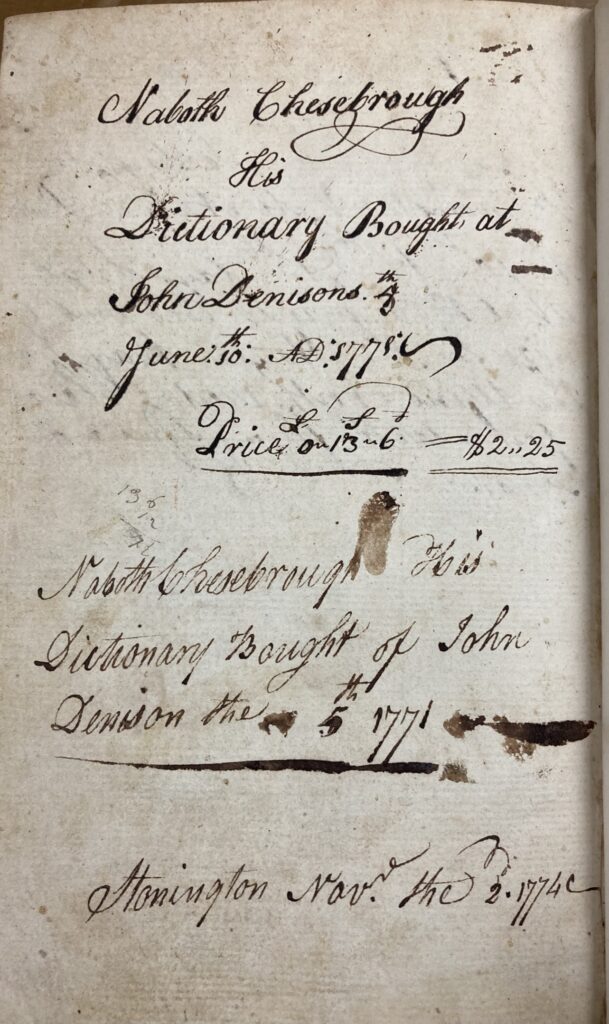 Naboth Chesebrough
His
Dictionary Bought at
John Denisons.
June. 10th: AD:
Price £ 0 „ 13 „ 6 = $2 „ 25
13 6
12
Naboth Chesebrough His
Dictionary Bought of John
Denison the 5th 1771
Stonington Novr. the 2d. 1774